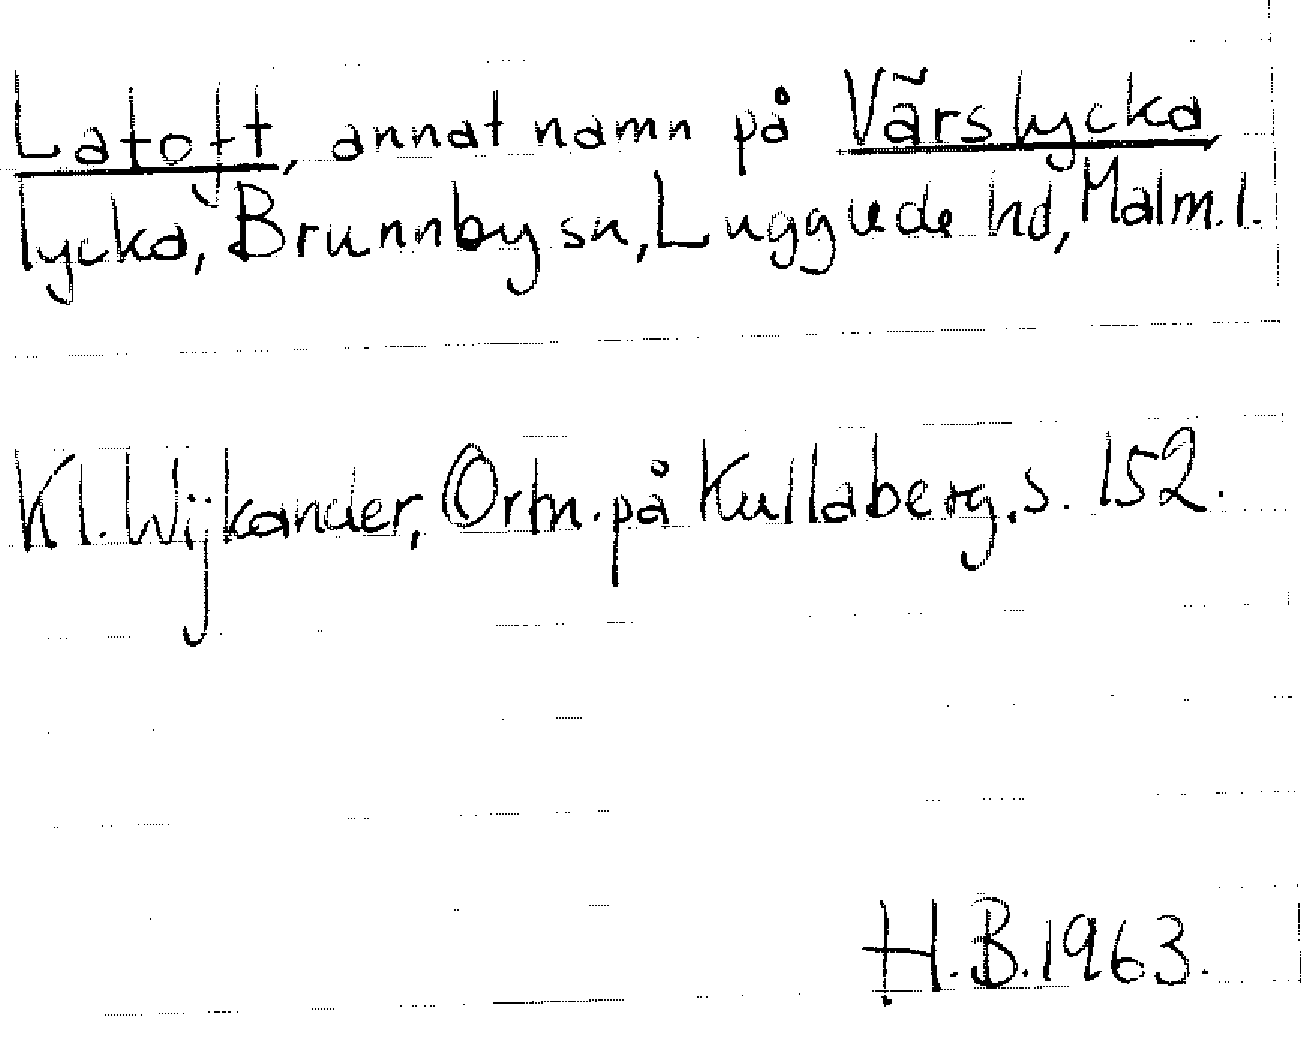 Latoft, annat namn på Värslycka,
lycka, Brunnby sn, Luggude hd, Malm. l.
Kl. Wijkander, Ortn. på Kullaberg, s. 152.
H.B. 1963.